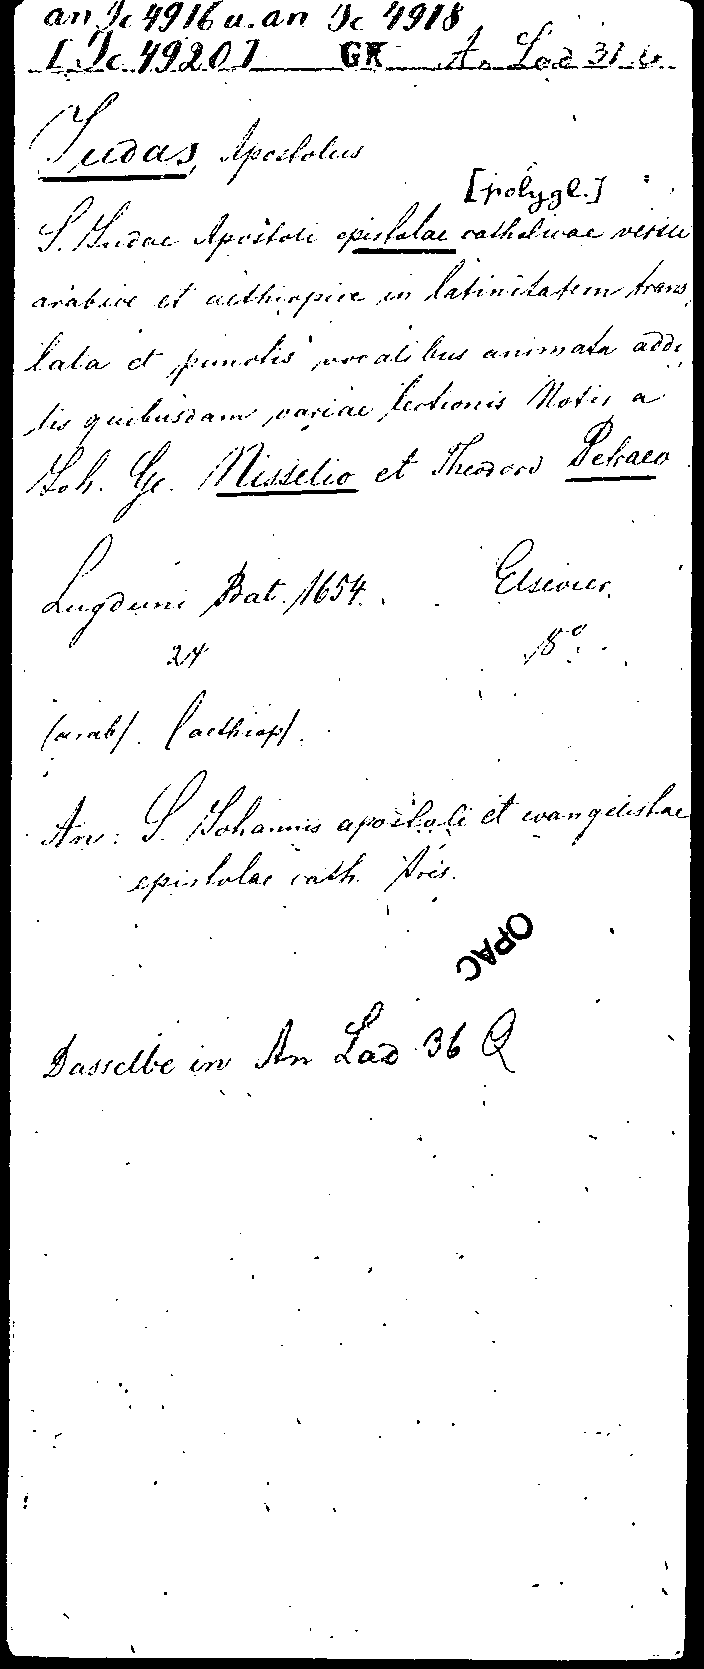 an Jc 4916 u. an Jc 4918
[Jc 4920] GK An Lad 31 b
Judas, Apostolus
[polygl.]
S. Judae Apostoli epistolae catholicae versio
arabice et aethiopice in latinitatem trans,
lata et punctis vocalibus animata addi,
tis quibusdam variae lectionis Notis a
Joh. Ge. Nisselio et Theodoro Petraeo
Lugduni Bat. 1654. Elsevier.
24 18°.
(arab). (aethiop).
An: S. Johannis apostoli et evangelistae
epistolae cath. tres.
OPAC
Dasselbe in An Lad 36 Q